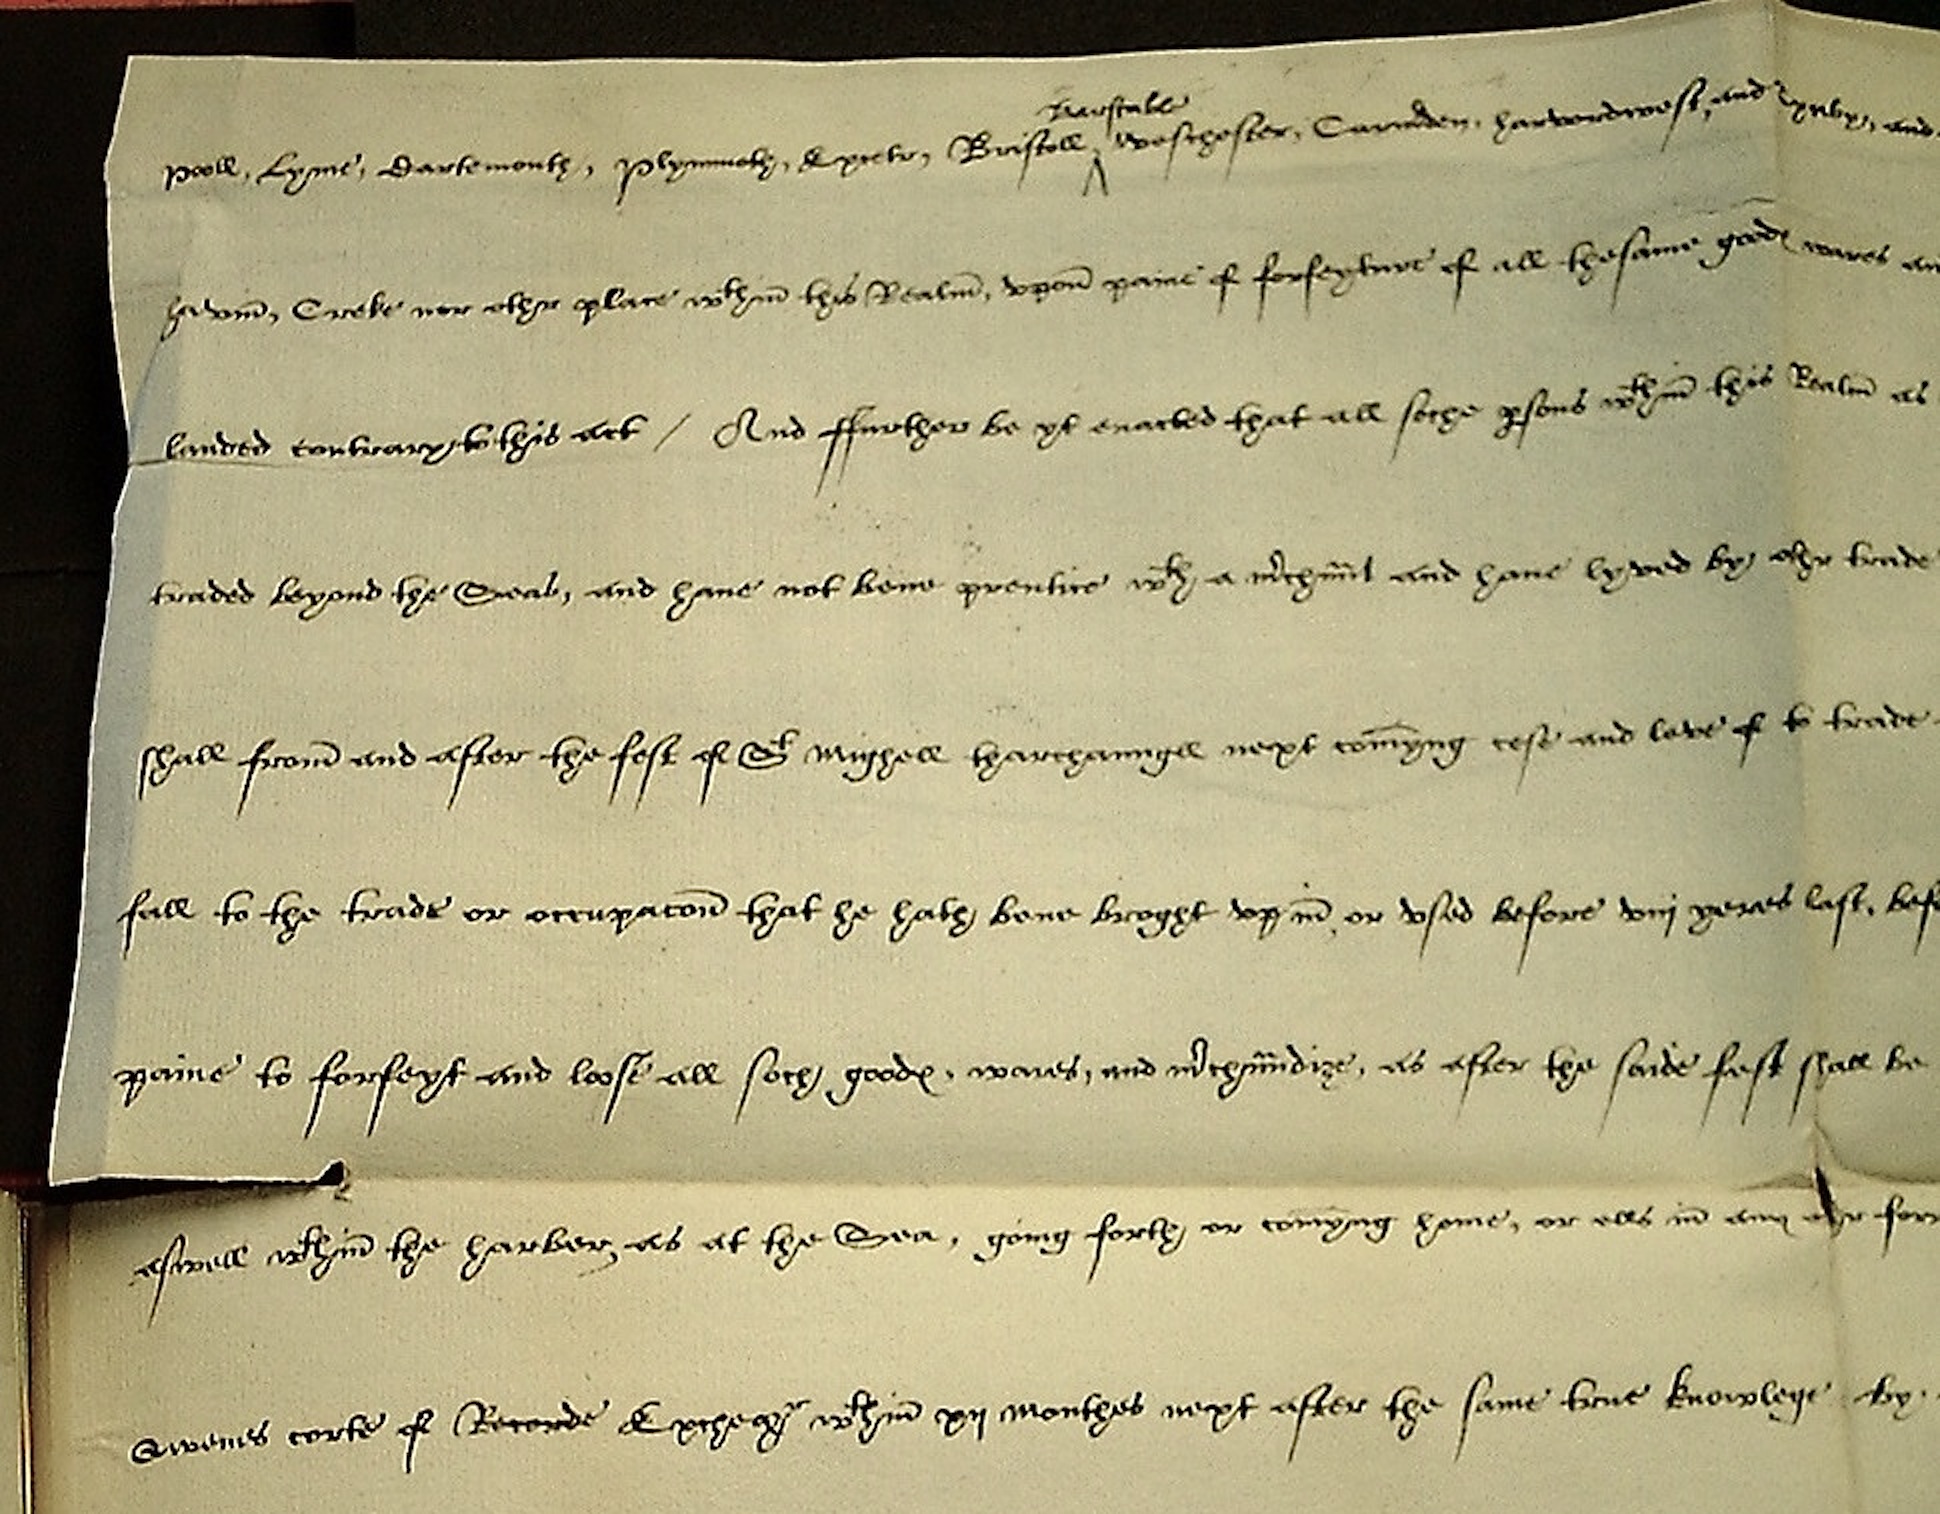 barstable
Pooll, Lyme, Dartemouth, Plymmoth, Excetr, Bristoll, Weschester, Carmden, harwordwest, and Tynby, and
havin, Creke nor othr place wthin this Realm, vpon paine of forfeyture of all thesame goodes wares an
landed contrary to this act / And ffurther be yt enacted that all soche psons wthin this Realm as
traded beyond the Seas, and haue not bene prentice wth a mrchunt and haue lyved by othr trade
shall from and after the fest of St Mighell tharchaungell next comyng cese and leve of to trade
fall to the trade or occupacon that he hath bene broght vp in, or vsed before viij yeres last, befo
paine to forfeyt and loose all soch goodes, wares, and mrchundize, as after the saide fest shall be
aswell wthin the harber, as at the Sea, going forth or comyng home, or ells in any othr for
Qwenes corte of Recorde Excheqr wthin xij monthes next after the same true knowlege by